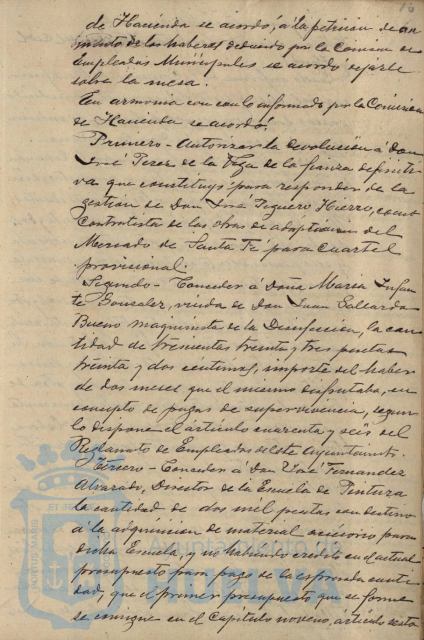 de Hacienda se acordó, a la petición de au
mento de los haberes deducido por la Comisión de
Empleados Municipales se acordó dejarlo
sobre la mesa.
En armonía con lo informado por la Comisión
de Hacienda se acordó.
Primero - Autorizar la devolución a Don
José Perez de la de la fianza definiti
va que constituyó para responder de la
gestión de Don José Hierro, como
Contratista de las obras de adaptación del
Mercado de Santa Fé para cuartel
provisional.
Segundo - Conceder á Doña María Infan
te Gonzalez, viuda de Don Juan Gallardo
Bueno maquinista de la Desinfección, la can
tidad de trescientas treinta y tres pesetas
treinta y dos centimos, importe del haber
de dos meses que el mismo disfrutaba, en
concepto de pagas de supervivencia, segun
lo dispone el artículo cuarenta y seis del
Reglamto de Empleados de este Ayuntamto.
Tercero - Conceder á Don José Fernandez
Alvarado, Director de la Escuela de Pintura
la cantidad de dos mil pesetas con destino
á la adquisicion de material accesorio para
dicha Escuela, y no habiendo credito en el actual
presupuesto para pago de la expresada canti
dad, que el primer presupuesto que se forme
se consigne en el Capítulo noveno, artículo sexto